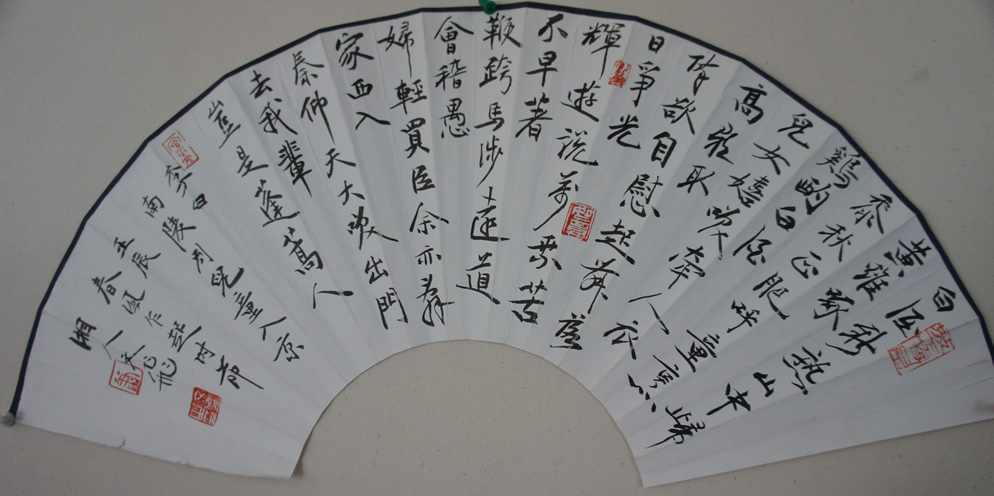 白酒新熟山中歸
黄雞啄
黍秋正肥呼童烹
鷄酌白酒
兒女嬉笑牽人衣
高歌取
醉欲自慰起舞落
日爭光
輝遊説萬乘苦
不早著
鞭跨馬涉遠道
會稽愚
婦輕買臣余亦辭
家西入
秦仰天大笑出門
去我輩
豈是蓬蒿人
李白
南陵別兒童入京
壬辰
春風作於
湘人